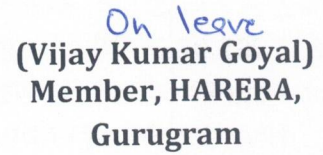 On leave
(Vijay Kumar Goyal)
Member, HARERA,
Gurugram